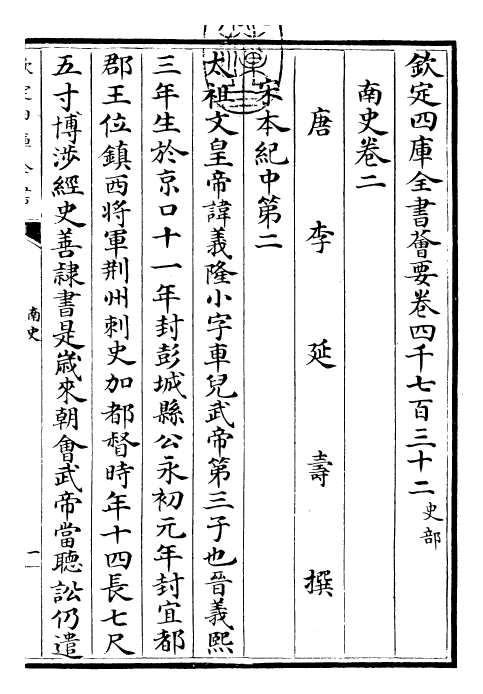 欽定四庫全書薈要卷四千七百三十二史部
南史卷二
唐李延壽撰
宋本紀中第二
太祖文皇帝諱義隆小字車兒武帝第三子也晉義熙
三年生於京口十一年封彭城縣公永初元年封宜都
郡王位鎮西將軍荆州刺史加都督時年十四長七尺
五寸博涉經史善隷書是嵗來朝會武帝當聽訟仍遣
南史
一